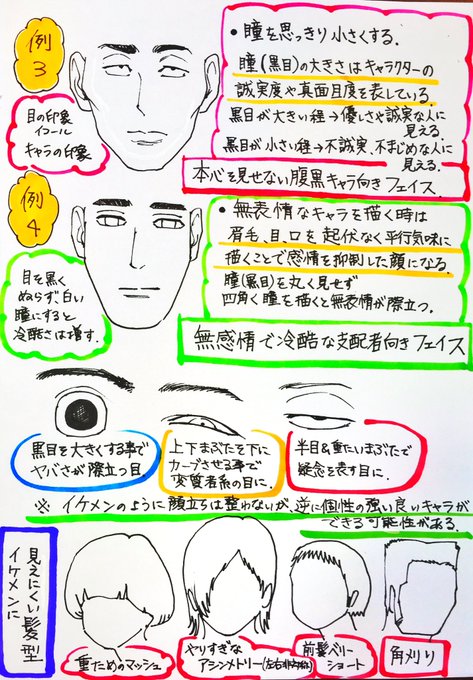 例3
・瞳を思っきり小さくする.
瞳(黒目)の大きさはキャラクターの
誠実度や真面目度を表している.
黒目が大きい程→優しさや誠実な人に
見える.
黒目が小さい程→不誠実.不まじめな人に
見える.
本心を見せない腹黒キャラ向きフェイス.
目の印象
イコール
キャラの印象
例4
・無表情なキャラを描く時は
眉毛、目、口を起伏なく平行気味に
描くことで感情を抑制した顔になる.
瞳(黒目)を丸く見せず
四角く瞳を描くと無表情が際立つ.
無感情で冷酷な支配者向きフェイス
目を黒く
ぬらず白い
瞳にすると
冷酷さは増す.
黒目を大きくする事で
ヤバさが際立つ目
上下まぶたを下に
カーブさせる事で
変質者系の目に.
半目&重たいまぶたで
疑念を表す目に.
※イケメンのように顔立ちは整わないが、逆に個性の強い良いキャラが
できる可能性がある.
イケメンに
見えにくい髪型
重ためのマッシュ
やりすぎな
アシンメトリー(左右非対称)
前髪ベリー
ショート
角刈り